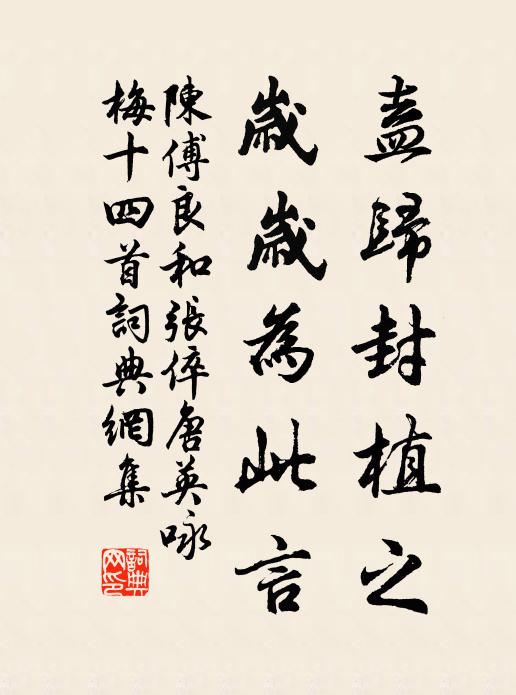 盍歸封植之
歲歲為此言
陳傅良和張倅唐英咏
梅十四首詞典網集
詞典
网印